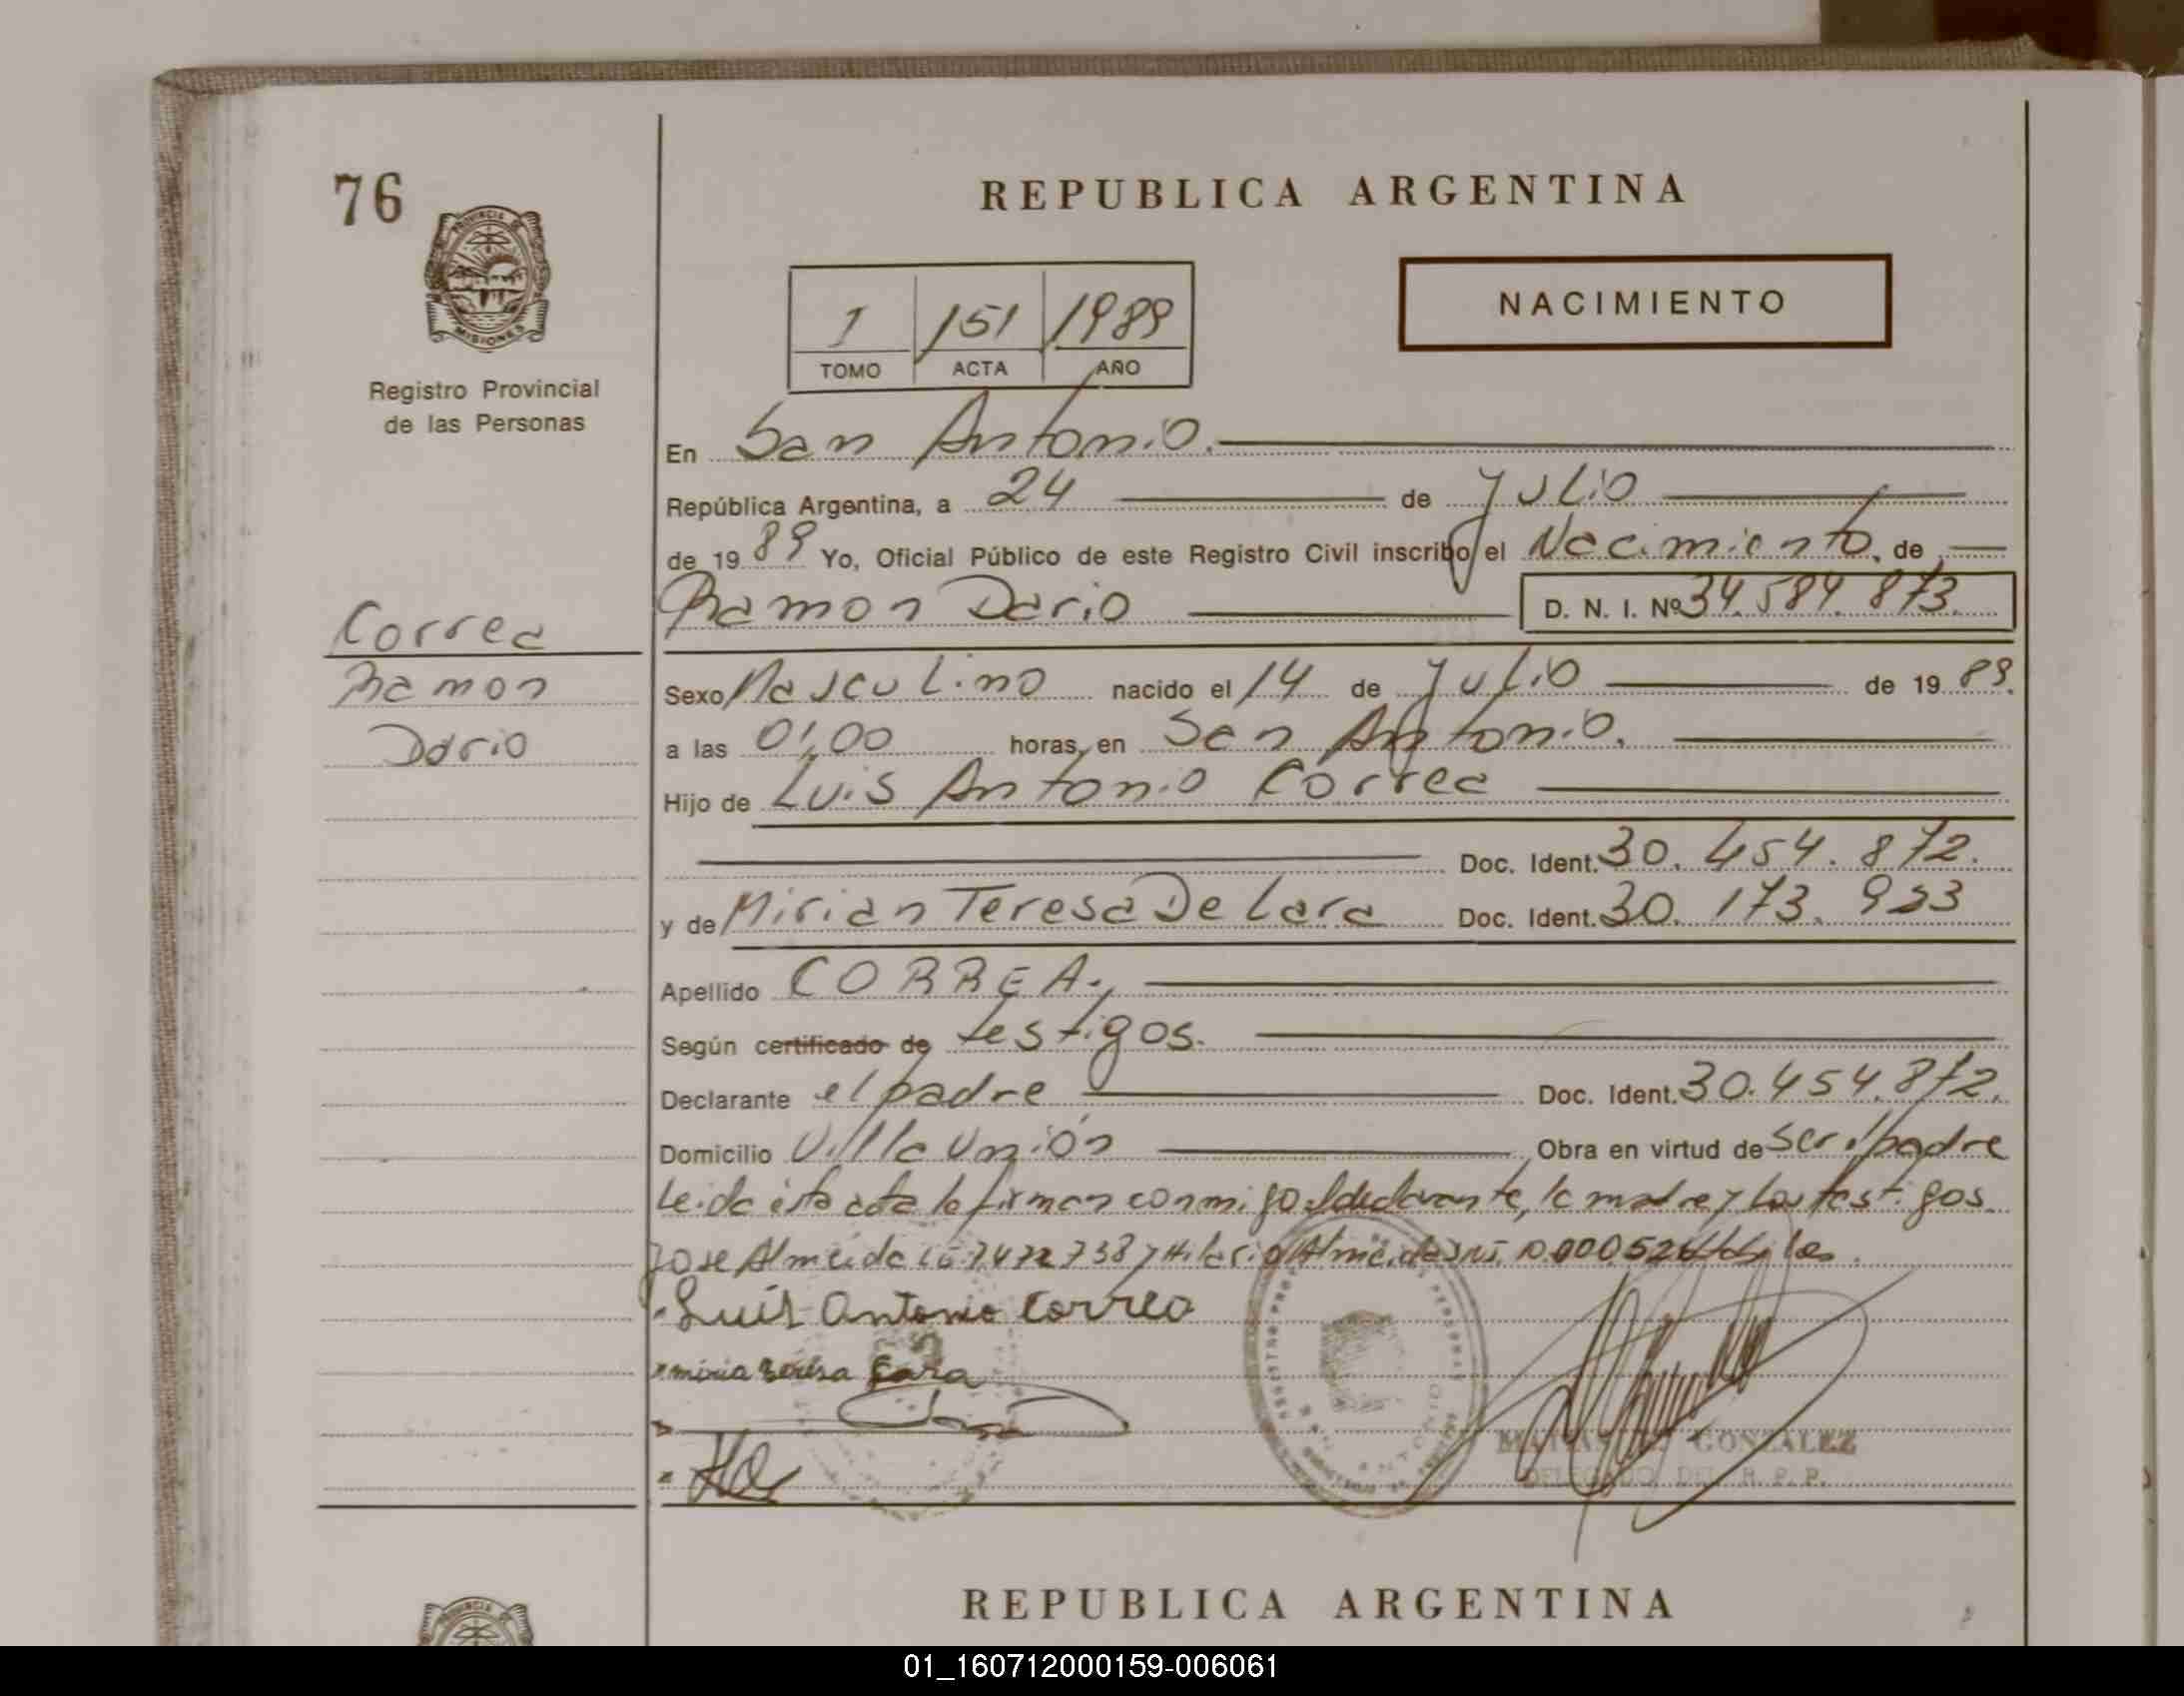 76
PROVINCIA DE
MISIONES
Registro Provincial
de las Personas
REPUBLICA ARGENTINA
NACIMIENTO
I 151 1989
TOMO ACTA AÑO
En San Antonio.
República Argentina, a 24 de Julio
de 1989 Yo, Oficial Público de este Registro Civil inscribo el Nacimiento, de
Ramon Dario D. N. I. Nº 34.584.873.
Correa
Ramon
Dario
Sexo Masculino nacido el 14 de Julio de 1989.
a las 01,00 horas, en San Antonio.
Hijo de Luis Antonio Correa
Doc. Ident. 30.454.872.
y de Mirian Teresa De Lara Doc. Ident. 30.173.953
Apellido CORREA.
Según certificado de testigos.
Declarante el padre Doc. Ident. 30.454.872.
Domicilio Villa Unión Obra en virtud de ser el padre
Leida esta acta la firman conmigo el declarante, la madre y los testigos
Jose Almeida 7.472.738 y Hilario Almeida
Luis Antonio Correa
miria teresa Lara
GONZALEZ
DELEGADO DEL R. P. P.
REPUBLICA ARGENTINA
01_160712000159-006061